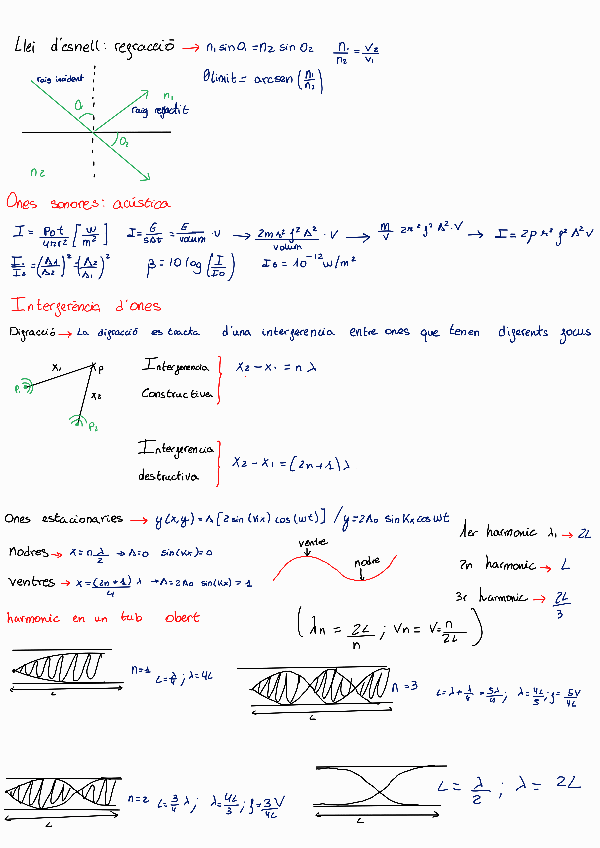 Llei d'esnell: regracció → n₁ sin O₁ = n₂ sin O₂ n₁/n₂ = v₂/v₁
θlimit = arcsen (n₁/n₂)
raig incident
O₁
n₁
raig refractit
O₂
n₂
Ones sonores: acústica
I = Pot/4πr² [w/m²] I = E/S·Δt = E/volum · v → 2mπ² f² A²/volum · v → m/v 2π² f² A² · v → I = 2ρ π² f² A² v
I₁/I₀ = (A1/A2)² = (A2/A1)² β = 10 log (I/I0) I0 = 10⁻¹² w/m²
Intergerència d'ones
Digracció → La digracció es tracta d'una intergerencia entre ones que tenen digerents gocus
x₁ xp
P₁ x₂
P₂
Intergerencia Constructiva x₂ - x₁ = n λ
Intergerencia destructiva x₂ - x₁ = (2n+1) λ
Ones estacionaries → y(x,y) = A [2 sin (Kx) cos (wt)] / y = 2A₀ sin Kx cos wt
1er harmonic λ₁ → 2L
nodres → x = n λ/2 → A=0 sin(kx)=0
ventre
nodre
2n harmonic → L
ventres → x = (2n+1)/4 λ → A = 2A₀ sin(kx) = 1
3r harmonic → 2L/3
harmonic en un tub obert
(λn = 2L/n ; Vn = V = n/2L)
n=1 L = λ/4 ; λ = 4L
L
n=3 L = λ + λ/4 = 5λ/4 ; λ = 4L/5 ; f = 5V/4L
L
n=2 L = 3/4 λ ; λ = 4L/3 ; f = 3V/4L
L
L = λ/2 ; λ = 2L
L